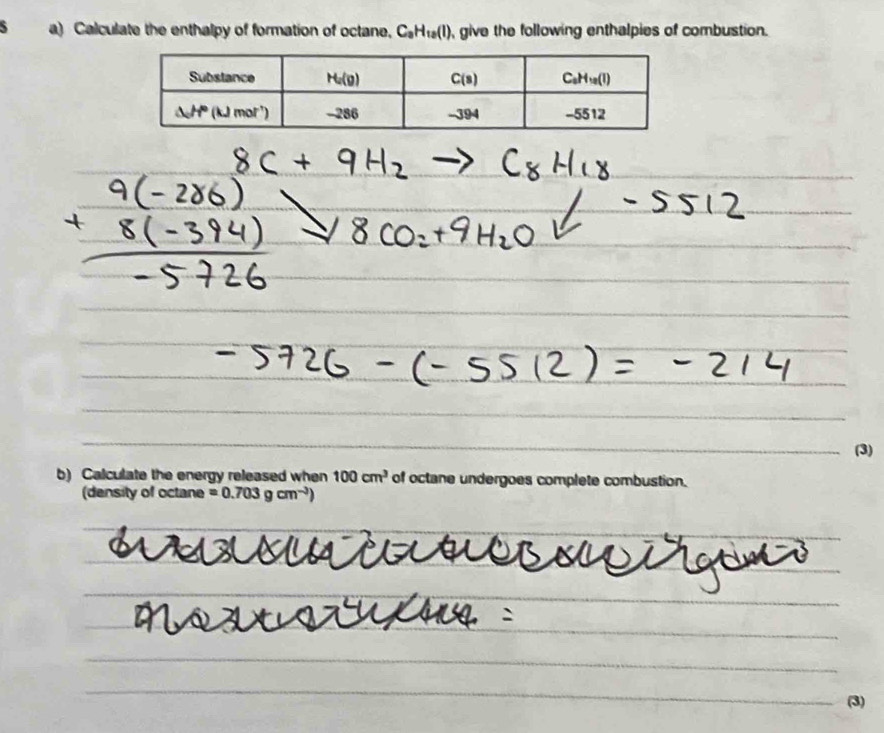 5 a) Calculate the enthalpy of formation of octane, C₈H₁₈(l), give the following enthalpies of combustion.
Substance H₂(g) C(s) C₈H₁₈(l)
ΔcH° (kJ mol⁻¹) –286 –394 –5512
8C + 9H₂ → C₈H₁₈
9(-286) -5512
+ 8(-394) 8CO₂+9H₂O
-5726
-5726 - (-5512) = -214
(3)
b) Calculate the energy released when 100 cm³ of octane undergoes complete combustion.
(density of octane = 0.703 g cm⁻³)
=
(3)